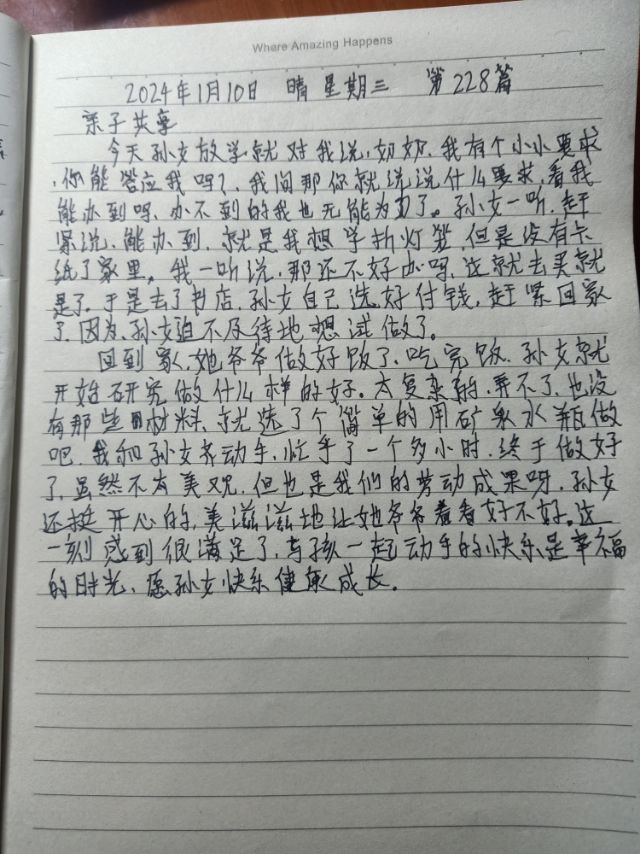 Where Amazing Happens
2024年1月10日 晴 星期三 第228篇
亲子共享
今天孙女放学就对我说,奶奶、我有个小小要求
,你能答应我吗?、我问那你就说说什么要求,看我
能办到吗、办不到的我也无能为力了。孙女一听、赶
紧说、能办到、就是我想学折灯笼、但是没有卡
纸了家里。我一听说、那还不好办吗、这就去买就
是了、于是去了书店、孙女自己选好付钱,赶紧回家
了、因为、孙女迫不及待地想试做了。
回到家、她爷爷做好饭了、吃完饭、孙女就
开始研究做什么样的好。太复杂的、弄不了、也没
有那些材料、就选了个简单的用矿泉水瓶做
吧、我和孙女齐动手、忙乎了一个多小时、终于做好
了、虽然不太美观、但也是我们的劳动成果呀、孙女
还挺开心的、美滋滋地让她爷爷看看好不好。这
一刻感到很满足了、与孩一起动手的快乐是幸福
的时光,愿孙女快乐健康成长。